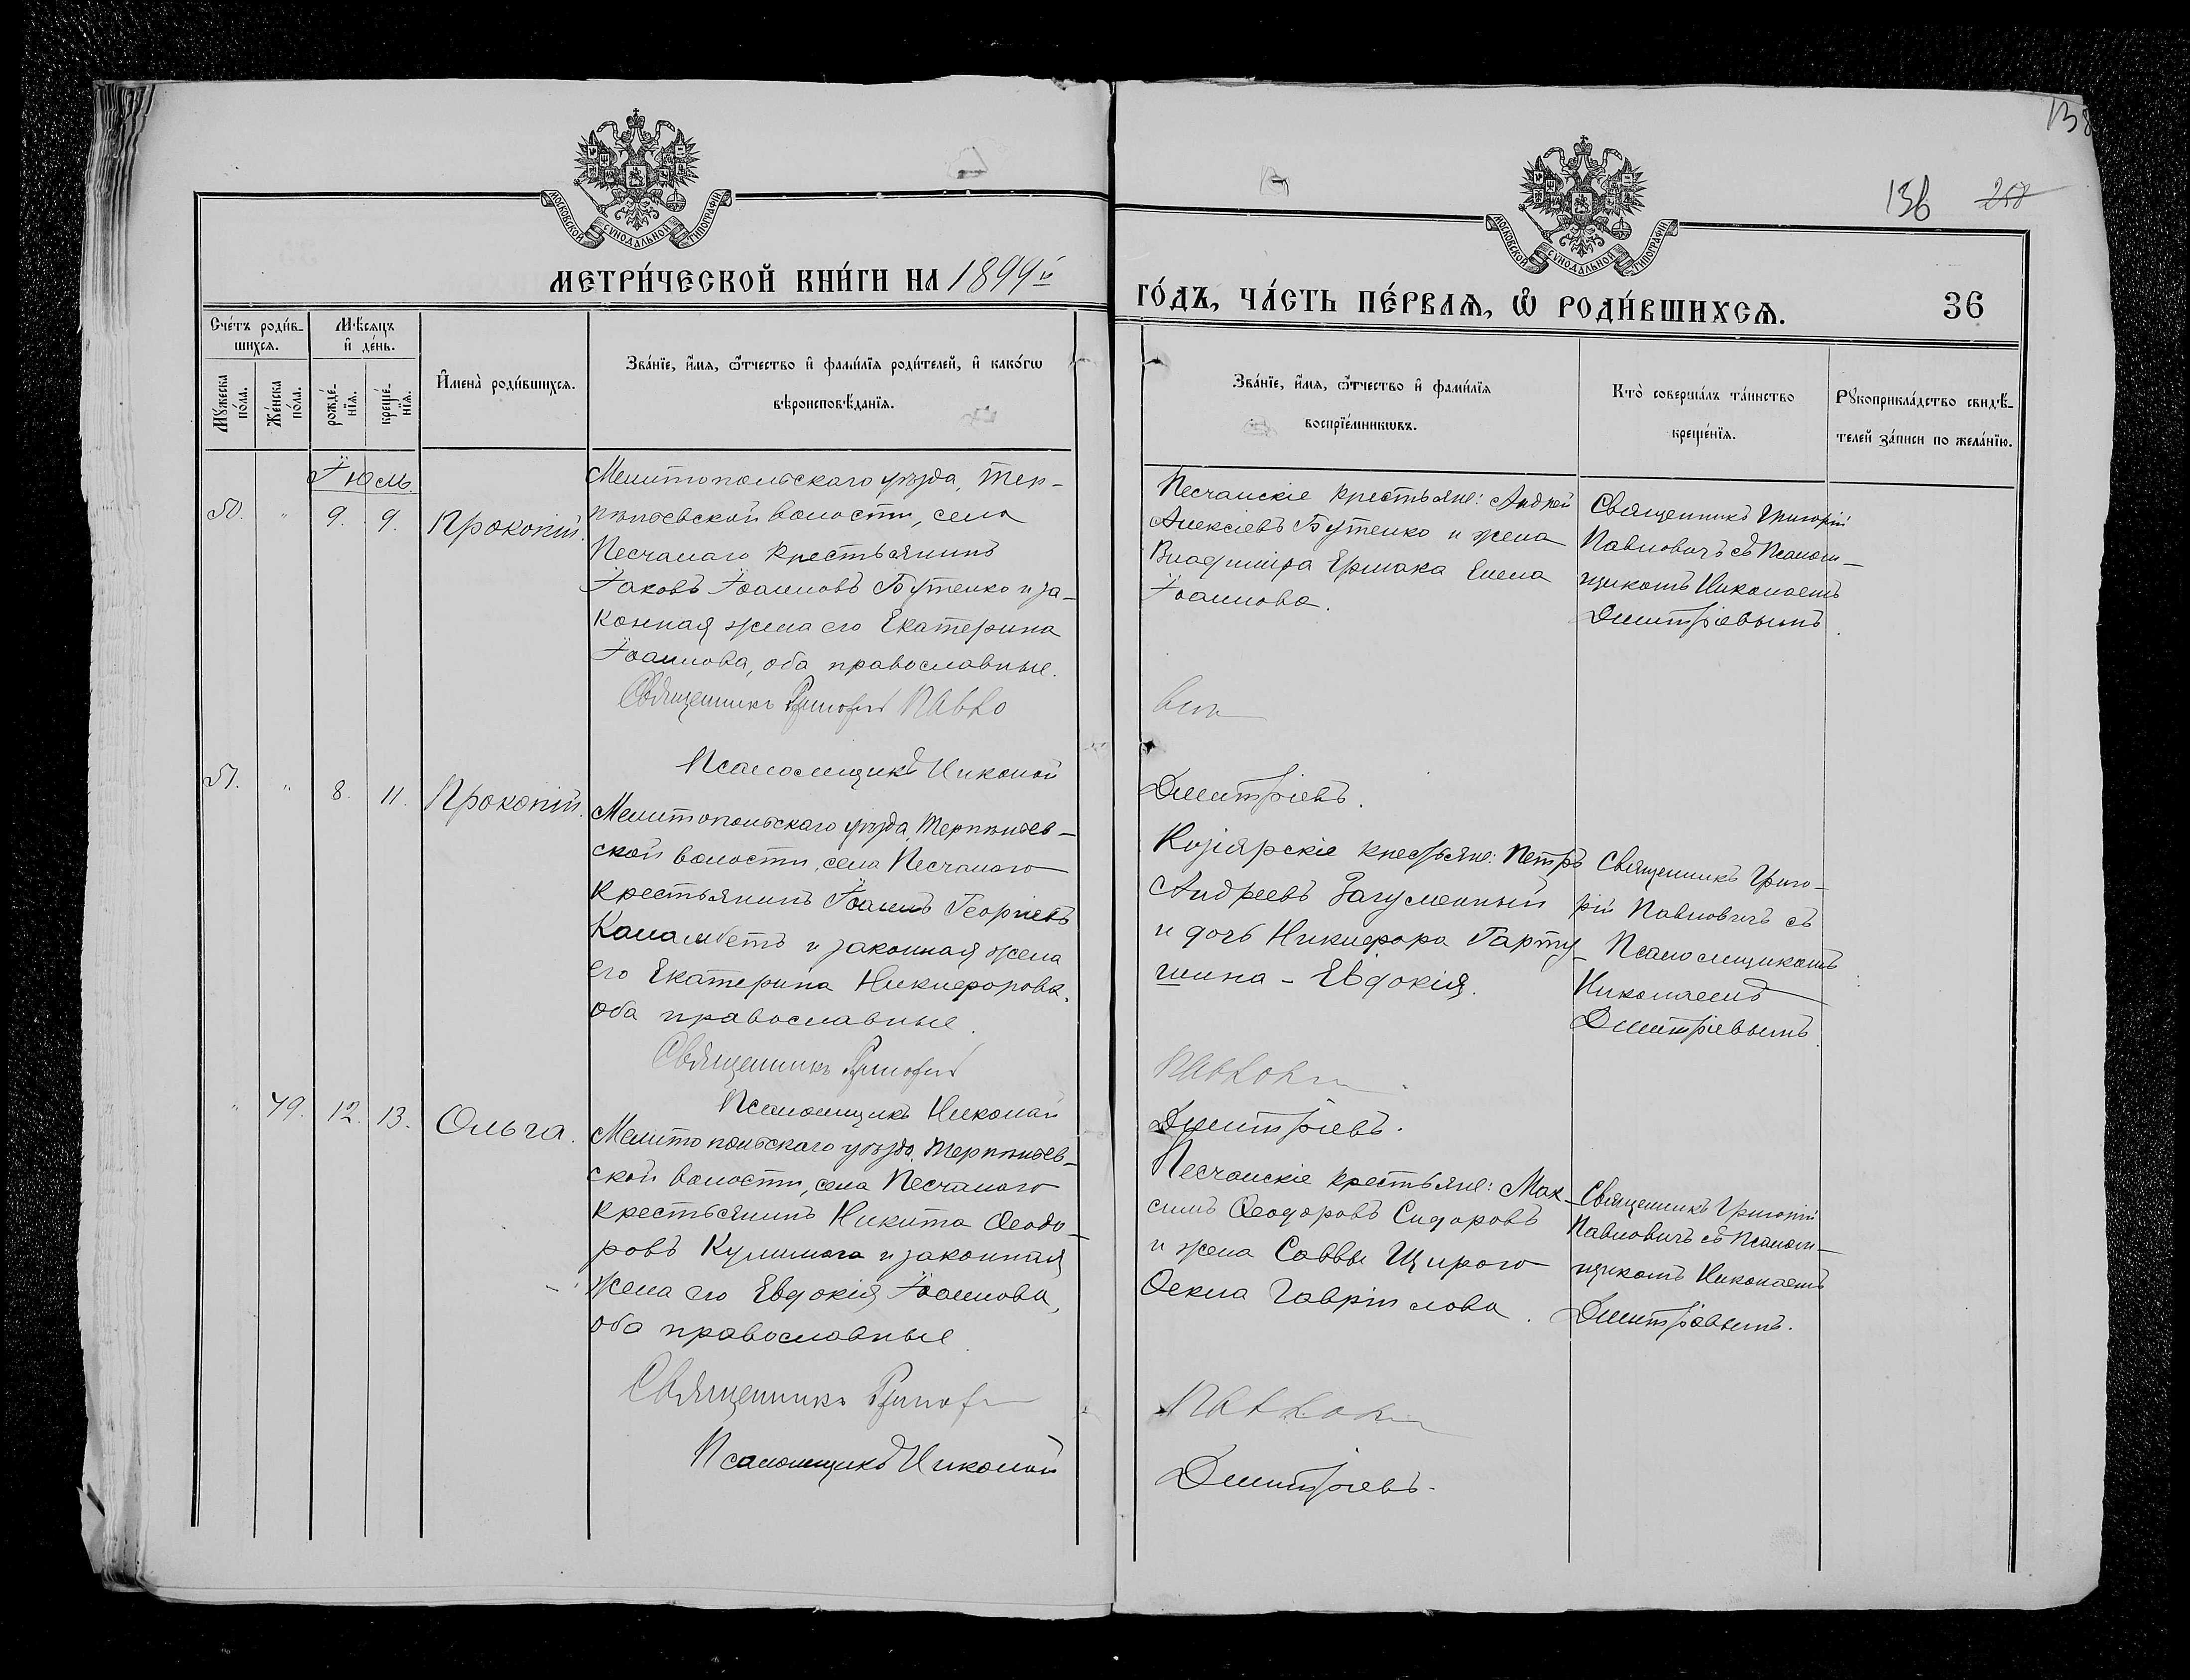 138
136 258
МОСКОВСКОЙ СѴНОДАЛЬНОЙ ТИПОГРАФІИ
МОСКОВСКОЙ СѴНОДАЛЬНОЙ ТИПОГРАФІИ
МЕТРИ́ЧЕСКОЙ КНИ́ГИ НА 1899й
ГО́ДЪ, ЧА́СТЬ ПЕ́РВАѦ, Ѽ РОДИ́ВШИХСѦ.
36
Сче́тъ роди́в-
шихсѧ.
Мꙋ́жеска по́ла.
Же́нска по́ла.
Мѣ́сѧцъ и҆ де́нь.
рожде́-нїѧ.
креще́-нїѧ.
И҆мена̀ роди́вшихсѧ.
Зва́нїе, и҆́мѧ, ѻ҆́тчество и҆ фами́лїѧ роди́телей, и҆ како́гѡ
вѣроисповѣ́данїѧ.
Зва́нїе, и҆́мѧ, ѻ҆́тчество и҆ фами́лїѧ
воспрїе́мникѡвъ.
Кто̀ соверша́лъ та́инство
креще́нїѧ.
Рꙋкоприкла́дство свидѣ́-
телей за́писи по жела́нїю.
Іюль.
50. " 9. 9. Прокопій.
Мелитопольскаго уѣзда, Тер-
пѣньевской волости, села
Песчанаго крестьянинъ
Іаковъ Іоанновъ Бутенко и за-
конная жена его Екатерина
Іоаннова, оба православные.
Священникъ Григорій Павло
Псаломщикъ Николай
Песчанскіе крестьяне: Андрей
Алексіевъ Бутенко и жена
Владиміра Ермака Елена
Іоаннова.
вичъ
Дмитріевъ.
Священникъ Григорій
Павловичъ съ Псалом-
щикомъ Николаемъ
Дмитріевымъ.
51. " 8. 11. Прокопій.
Мелитопольскаго уѣзда, Терпѣньев-
ской волости, села Песчанаго
крестьянинъ Іоаннъ Георгіевъ
Каламбетъ и законная жена
его Екатерина Никифорова,
оба православные.
Священникъ Григорій
Псаломщикъ Николай
Козіярскіе крестьяне: Петръ
Андреевъ Загуменный
и дочь Никифора Гарту-
шина - Евдокія.
Павлович
Дмитріевъ.
Священникъ Григо-
рій Павловичъ съ
Псаломщикомъ
Николаемъ
Дмитріевымъ.
" 49. 12. 13. Ольга.
Мелитопольскаго уѣзда, Терпѣньев-
ской волости, села Песчанаго
крестьянинъ Никита Ѳеодо-
ровъ и законная
жена его Евдокія Іоаннова,
оба православные.
Священникъ Григорій
Псаломщикъ Николай
Песчанскіе крестьяне: Мак-
симъ Ѳеодоровъ Сидоровъ
и жена Саввы Щирого
Ѳекла Гавріилова.
Павлович
Дмитріевъ.
Священникъ Григорій
Павловичъ съ Псалом-
щикомъ Николаемъ
Дмитріевымъ.